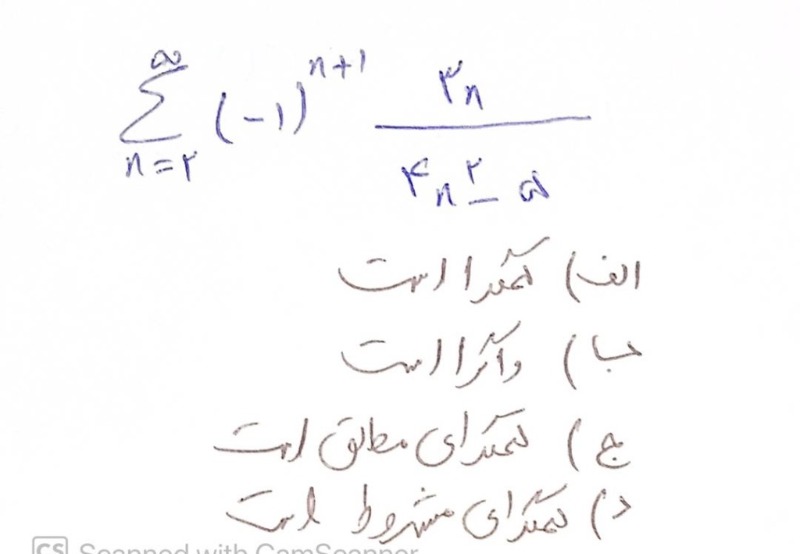 ∞
∑ (-۱)^{n+۱} ۳n / ۴n^۲ - ۵
n=۲
الف) همگرا است
با) واگرا است
ج) همگرای مطلق است
د) همگرای مشروط است
CS Scanned with CamScanner